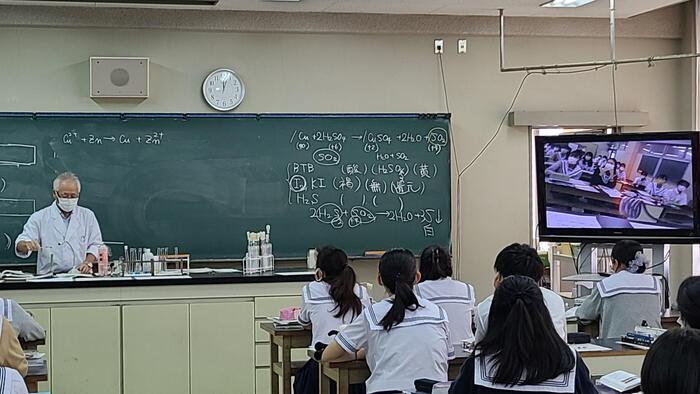 Cu²⁺ + Zn → Cu + Zn²⁺
Cu + 2H₂SO₄ → CuSO₄ + 2H₂O + SO₂
(0) (+6) (+2) (+4)
SO₂
H₂O + SO₂
BTB (酸) (H₂SO₃) (黄)
I₂ KI (褐) (無) (還元)
H₂S ( ) ( )
2H₂S + SO₂ → 2H₂O + 3S↓
白